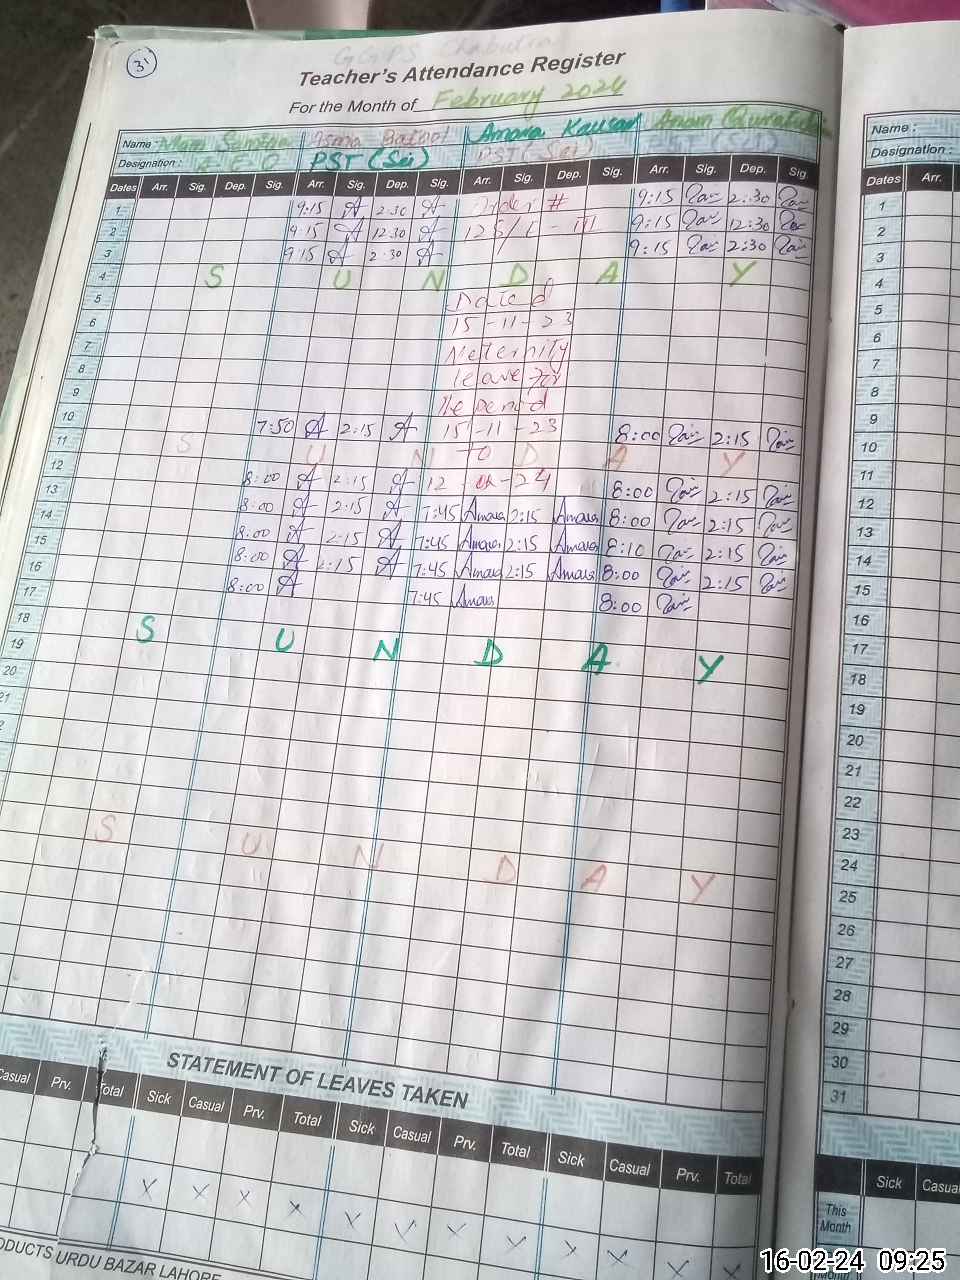 31
GGPS Chabutra
Teacher's Attendance Register
For the Month of February 2024
Name : Asma Amara Kausar Anam
Designation : A E O PST (Sci) PST (Sci)
Dates Arr. Sig. Dep. Sig. Arr. Sig. Dep. Sig. Arr. Sig. Dep. Sig. Arr. Sig. Dep. Sig.
1 9:15 A 2:30 A Order # 9:15 2:30
2 9:15 A 12:30 A 9:15 12:30
3 9:15 A 2:30 A 9:15 2:30
4 S U N D A Y
5 Dated
6 15-11-23
7 Meternity
8 leave for
9 the period
10 7:50 A 2:15 A 15-11-23 8:00 2:15
11 S U N D A Y to
12 8:00 A 2:15 A 12 24 8:00 2:15
13 8:00 A 2:15 A 7:45 Amara 2:15 Amara 8:00 2:15
14 8:00 A 2:15 A 7:45 Amara 2:15 Amara 8:10 2:15
15 8:00 A 2:15 A 7:45 Amara 2:15 Amara 8:00 2:15
16 8:00 A 7:45 Amara 8:00
17
18 S U N D A Y
19
20
21
S U N D A Y
STATEMENT OF LEAVES TAKEN
Casual Prv. Total Sick Casual Prv. Total Sick Casual Prv. Total Sick Casual Prv. Total
x x x x x x x x x x x x
PRODUCTS URDU BAZAR LAHORE
Name :
Designation :
Dates Arr.
1
2
3
4
5
6
7
8
9
10
11
12
13
14
15
16
17
18
19
20
21
22
23
24
25
26
27
28
29
30
31
Sick Casual
This
Month
16-02-24 09:25